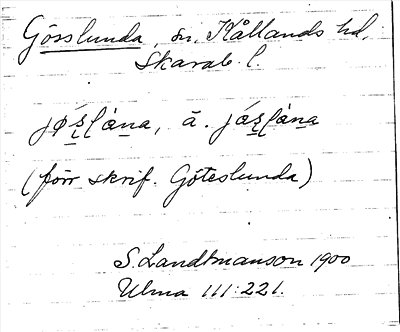 Gösslunda, sn. Kållands hd,
Skarab. l.
jǿʂl̀ana, ä. jáʂl̀ana
(förr skrif. Göteslunda)
S. Landtmanson 1900
Ulma 111:221.